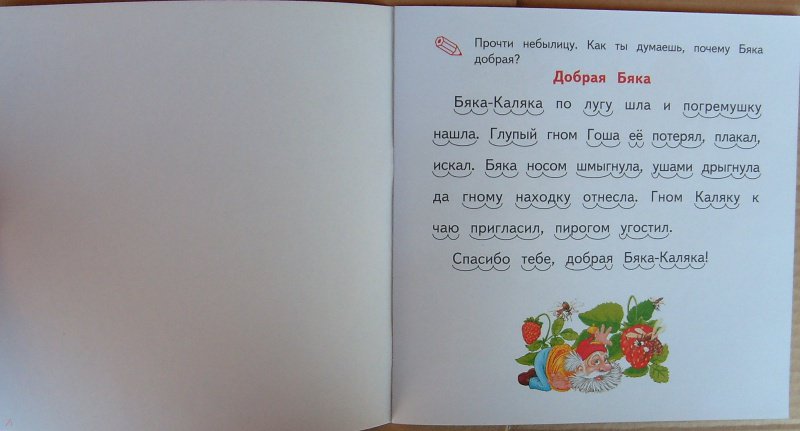 Прочти небылицу. Как ты думаешь, почему Бяка
добрая?
Добрая Бяка
Бяка-Каляка по лугу шла и погремушку
нашла. Глупый гном Гоша её потерял, плакал,
искал. Бяка носом шмыгнула, ушами дрыгнула
да гному находку отнесла. Гном Каляку к
чаю пригласил, пирогом угостил.
Спасибо тебе, добрая Бяка-Каляка!